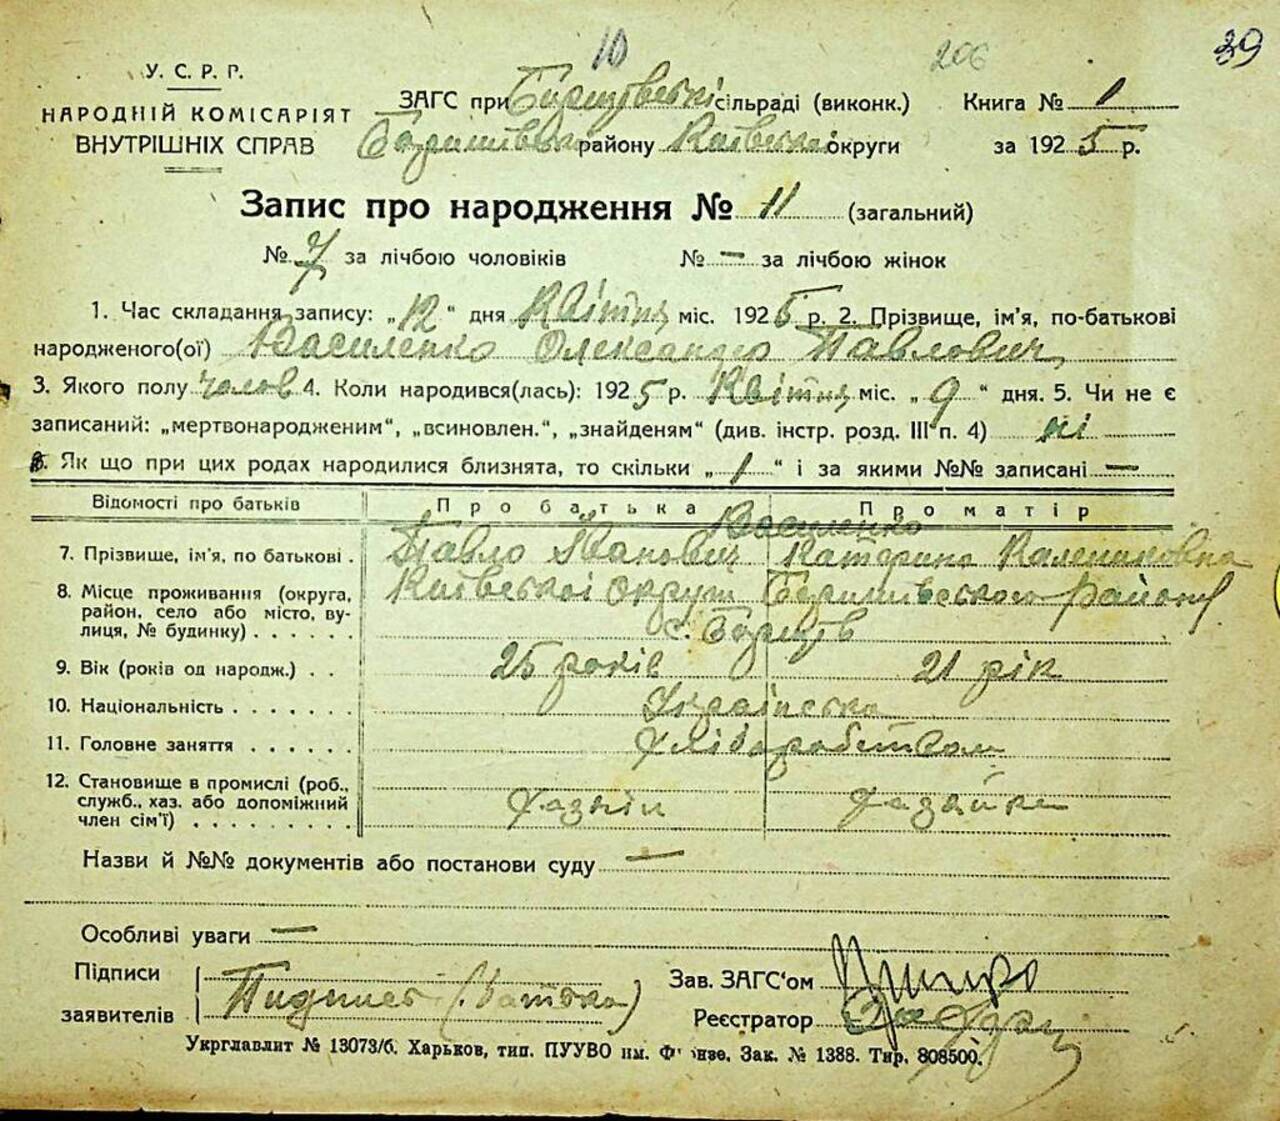 10 206 39
У. С. Р. Р.
НАРОДНІЙ КОМІСАРІЯТ
ВНУТРІШНІХ СПРАВ
ЗАГС при сільраді (виконк.) Книга № 1
району Київської округи за 1925 р.
Запис про народження № 11 (загальний)
№ 7 за лічбою чоловіків № — за лічбою жінок
1. Час складання запису: „12“ дня Квітня міс. 1925 р. 2. Прізвище, ім'я, по-батькові
народженого(ої) Василенко Олександр Павлович
3. Якого полу чолов 4. Коли народився(лась): 1925 р. Квітня міс. „9“ дня. 5. Чи не є
записаний: „мертвонародженим“, „всиновлен.“, „знайденям“ (див. інстр. розд. III п. 4) ні
6. Як що при цих родах народилися близнята, то скільки „1“ і за якими №№ записані —
Відомості про батьків Про батька Про матір
Василенко
7. Прізвище, ім'я, по батькові . Павло Іванович Катерина
8. Місце проживання (округа, район, село або місто, вулиця, № будинку) . . . . . . Київської округи району
с.
9. Вік (років од народж.) . . 25 років 21 рік
10. Національність . . . . . . . Українська
11. Головне заняття . . . . . . Хліборобством
12. Становище в промислі (роб., служб., хаз. або допоміжний член сім'ї) . . . . . . . . . Хазяїн Хазяйка
Назви й №№ документів або постанови суду —
Особливі уваги —
Підписи
заявителів (батька)
Зав. ЗАГС'ом
Реєстратор
Укрглавлит № 13073/б. Харьков, тип. ПУУВО им. Фрунзе. Зак. № 1388. Тир. 808500.